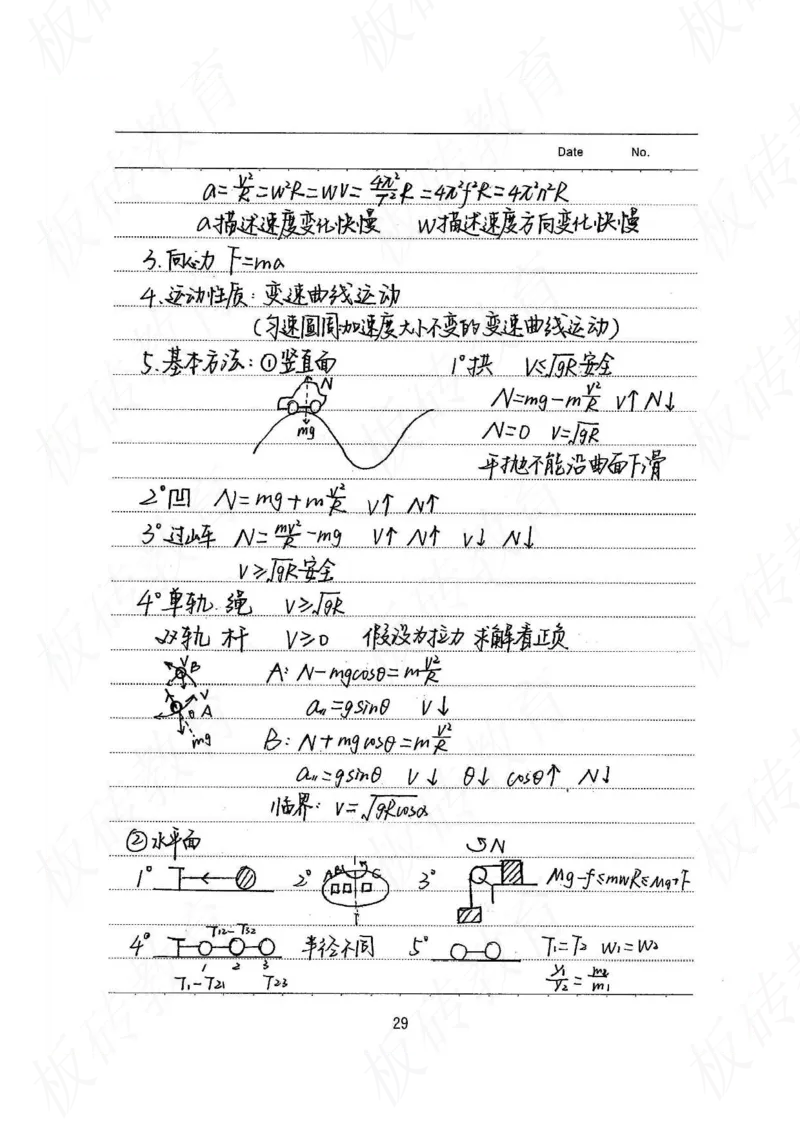 Date No.
a=v²/R=w²R=wv=4π²/T²R=4π²f²R=4π²n²R
a描述速度变化快慢 w描述速度方向变化快慢
3.向心力 F=ma
4.运动性质:变速曲线运动
(匀速圆周加速度大小不变的变速曲线运动)
5.基本方法:①竖直面 1°拱 V≤√gR安全
N
N=mg-mv²/R V↑N↓
mg
N=0 V=√gR
平抛不能沿曲面下滑
2°凹 N=mg+mv²/R V↑ N↑
3°过山车 N=mv²/R-mg V↑ N↑ V↓ N↓
V≥√gR安全
4°单轨.绳 V≥√gR
双轨 杆 V≥0 假设为拉力 求解看正负
V B
A: N-mgcosθ=mv²/R
V
θ A
a₁₁=gsinθ V↓
mg
B: N+mgcosθ=mv²/R
a₁₁=gsinθ V↓ θ↓ cosθ↑ N↓
临界: V=√gRcosα
②水平面
N
1° 2° A B C 3° Mg-f≤mwR≤Mg+f
4° T12-T32 半径不同 5° T₁=T₂ W₁=W₂
1 2 3
T₁-T21 T23
r₁/r₂=m₂/m₁
29
板砖教育